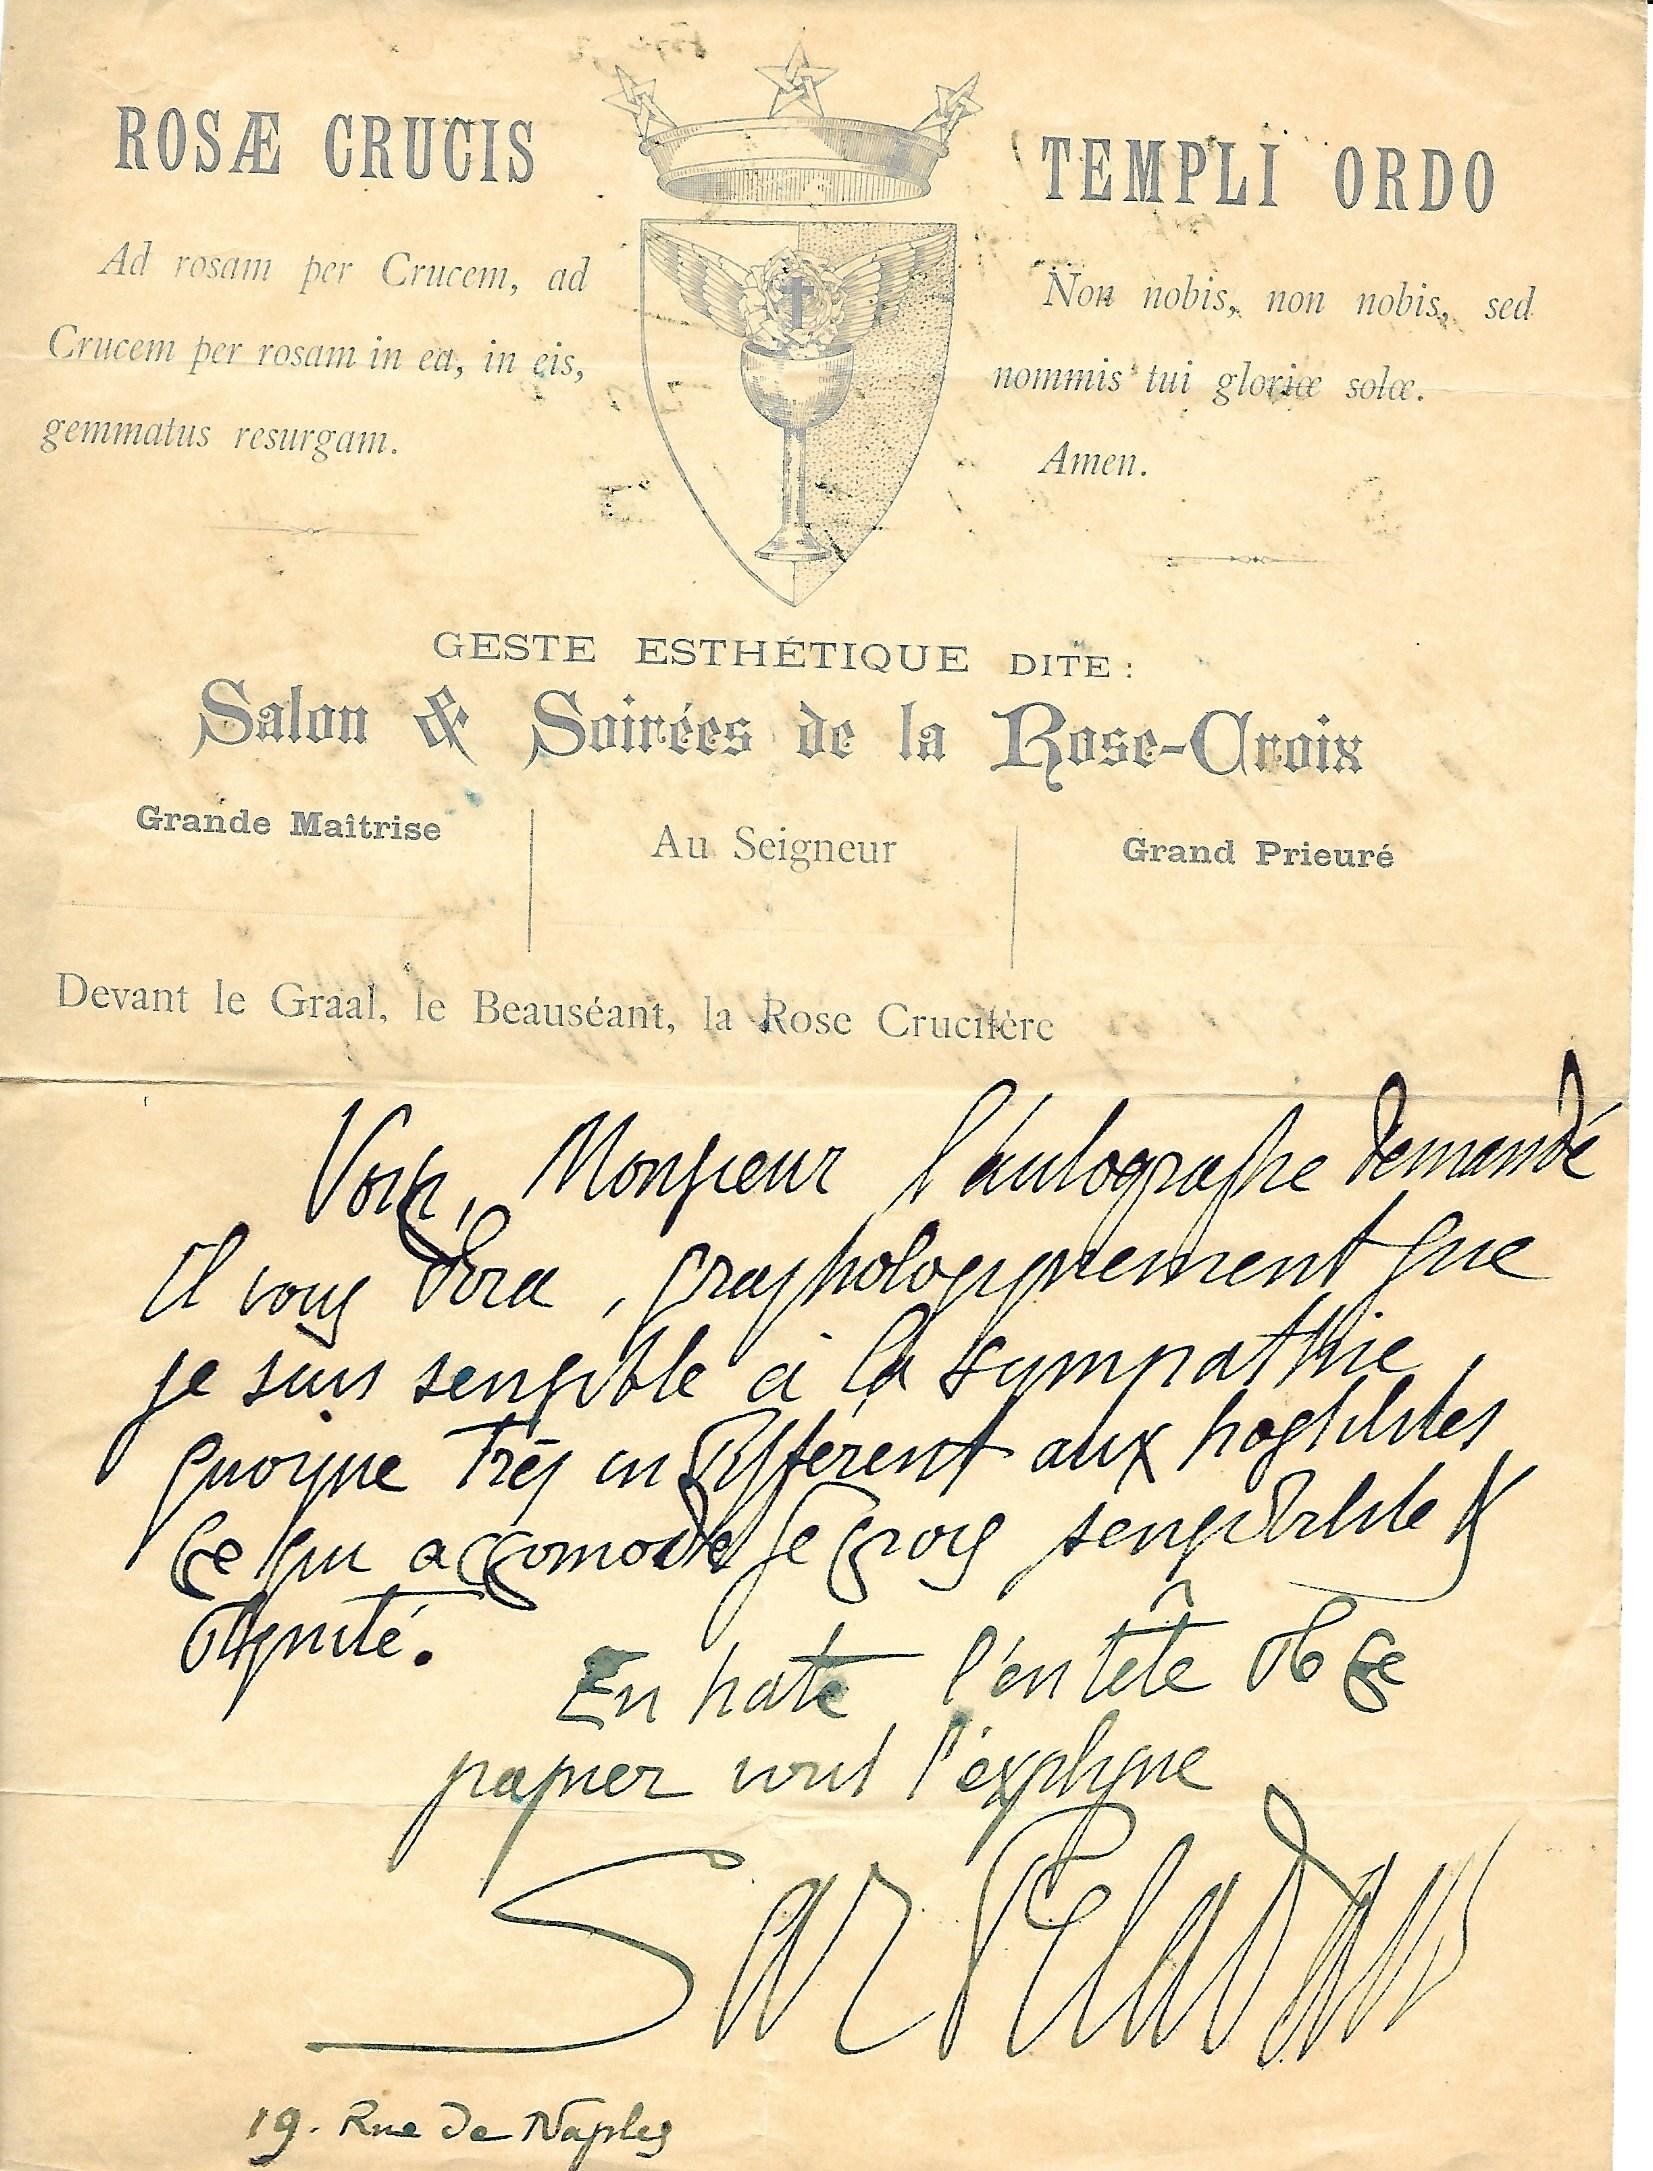 ROSÆ CRUCIS
Ad rosam per Crucem, ad
Crucem per rosam in ea, in eis,
gemmatus resurgam.
TEMPLI ORDO
Non nobis, non nobis, sed
nommis tui gloriæ solæ.
Amen.
GESTE ESTHÉTIQUE DITE :
Salon & Soirées de la Rose-Croix
Grande Maîtrise
Au Seigneur
Grand Prieuré
Devant le Graal, le Beauséant, la Rose Crucifère
Voici, Monsieur l'autographe demandé
Il vous dira, graphologiquement que
je suis sensible à la sympathie,
quoique très indifférent aux hostilités
ce qui accomode je crois sensibilité &
dignité.
En hate, l'en tête de ce
papier vous l'explique
Sar Peladan
19. Rue de Naples